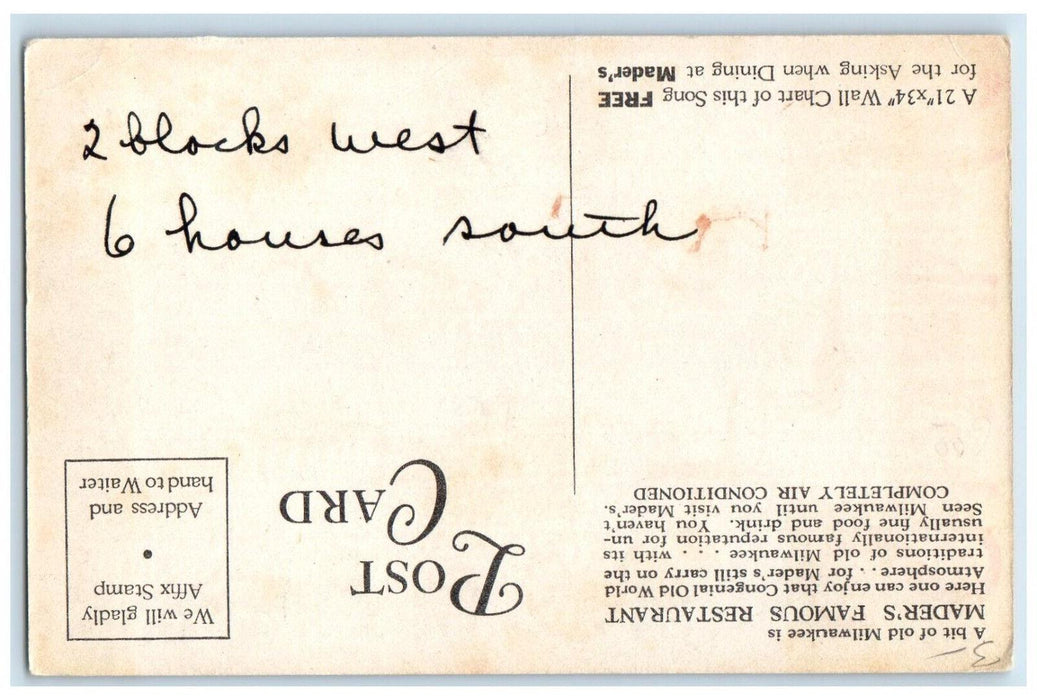 2 blocks west
6 houses south
A bit of old Milwaukee is
MADER'S FAMOUS RESTAURANT
Here one can enjoy that Congenial Old World
Atmosphere . . for Mader's still carry on the
traditions of old Milwaukee . . . with its
internationally famous reputation for un-
usually fine food and drink. You haven't
Seen Milwaukee until you visit Mader's.
COMPLETELY AIR CONDITIONED
A 21"x34" Wall Chart of this Song FREE
for the Asking when Dining at Mader's
POST
CARD
We will gladly
Affix Stamp
•
Address and
hand to Waiter
3-